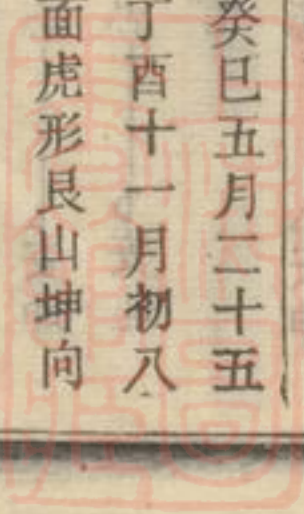 癸巳五月二十五
丁酉十一月初八
面虎形艮山坤向